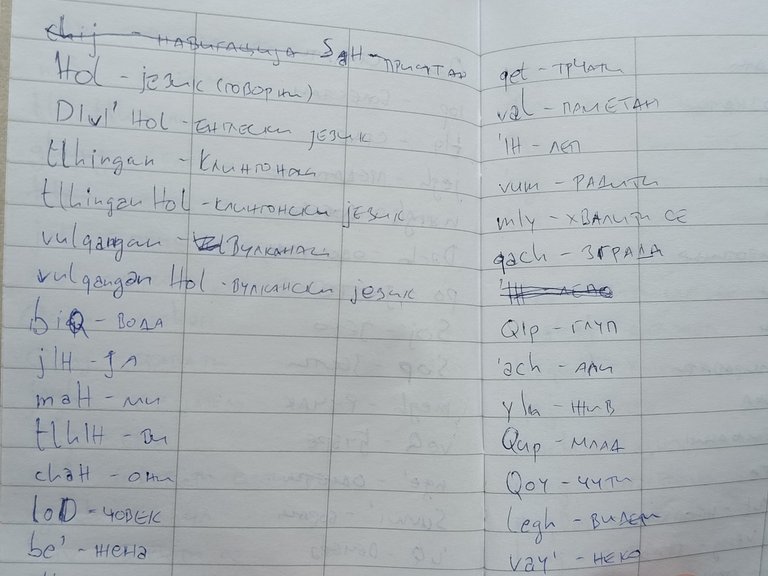 chij - навигација SaH - присутан
Hol - језик (говорни)
DIvI' Hol - енглески језик
tlhingan - Клингонац
tlhingan Hol - клингонски језик
vulqangan - Вулканац
vulqangan Hol - вулкански језик
biQ - вода
jIH - ја
maH - ми
tlhIH - ви
chaH - они
loD - човек
be' - жена
qet - трчати
val - паметан
'IH - леп
vum - радити
mIy - хвалити се
qach - зграда
'IH - леп
QIp - глуп
'ach - али
yIn - жив
Qup - млад
Qoy - чути
legh - видети
vay' - неко